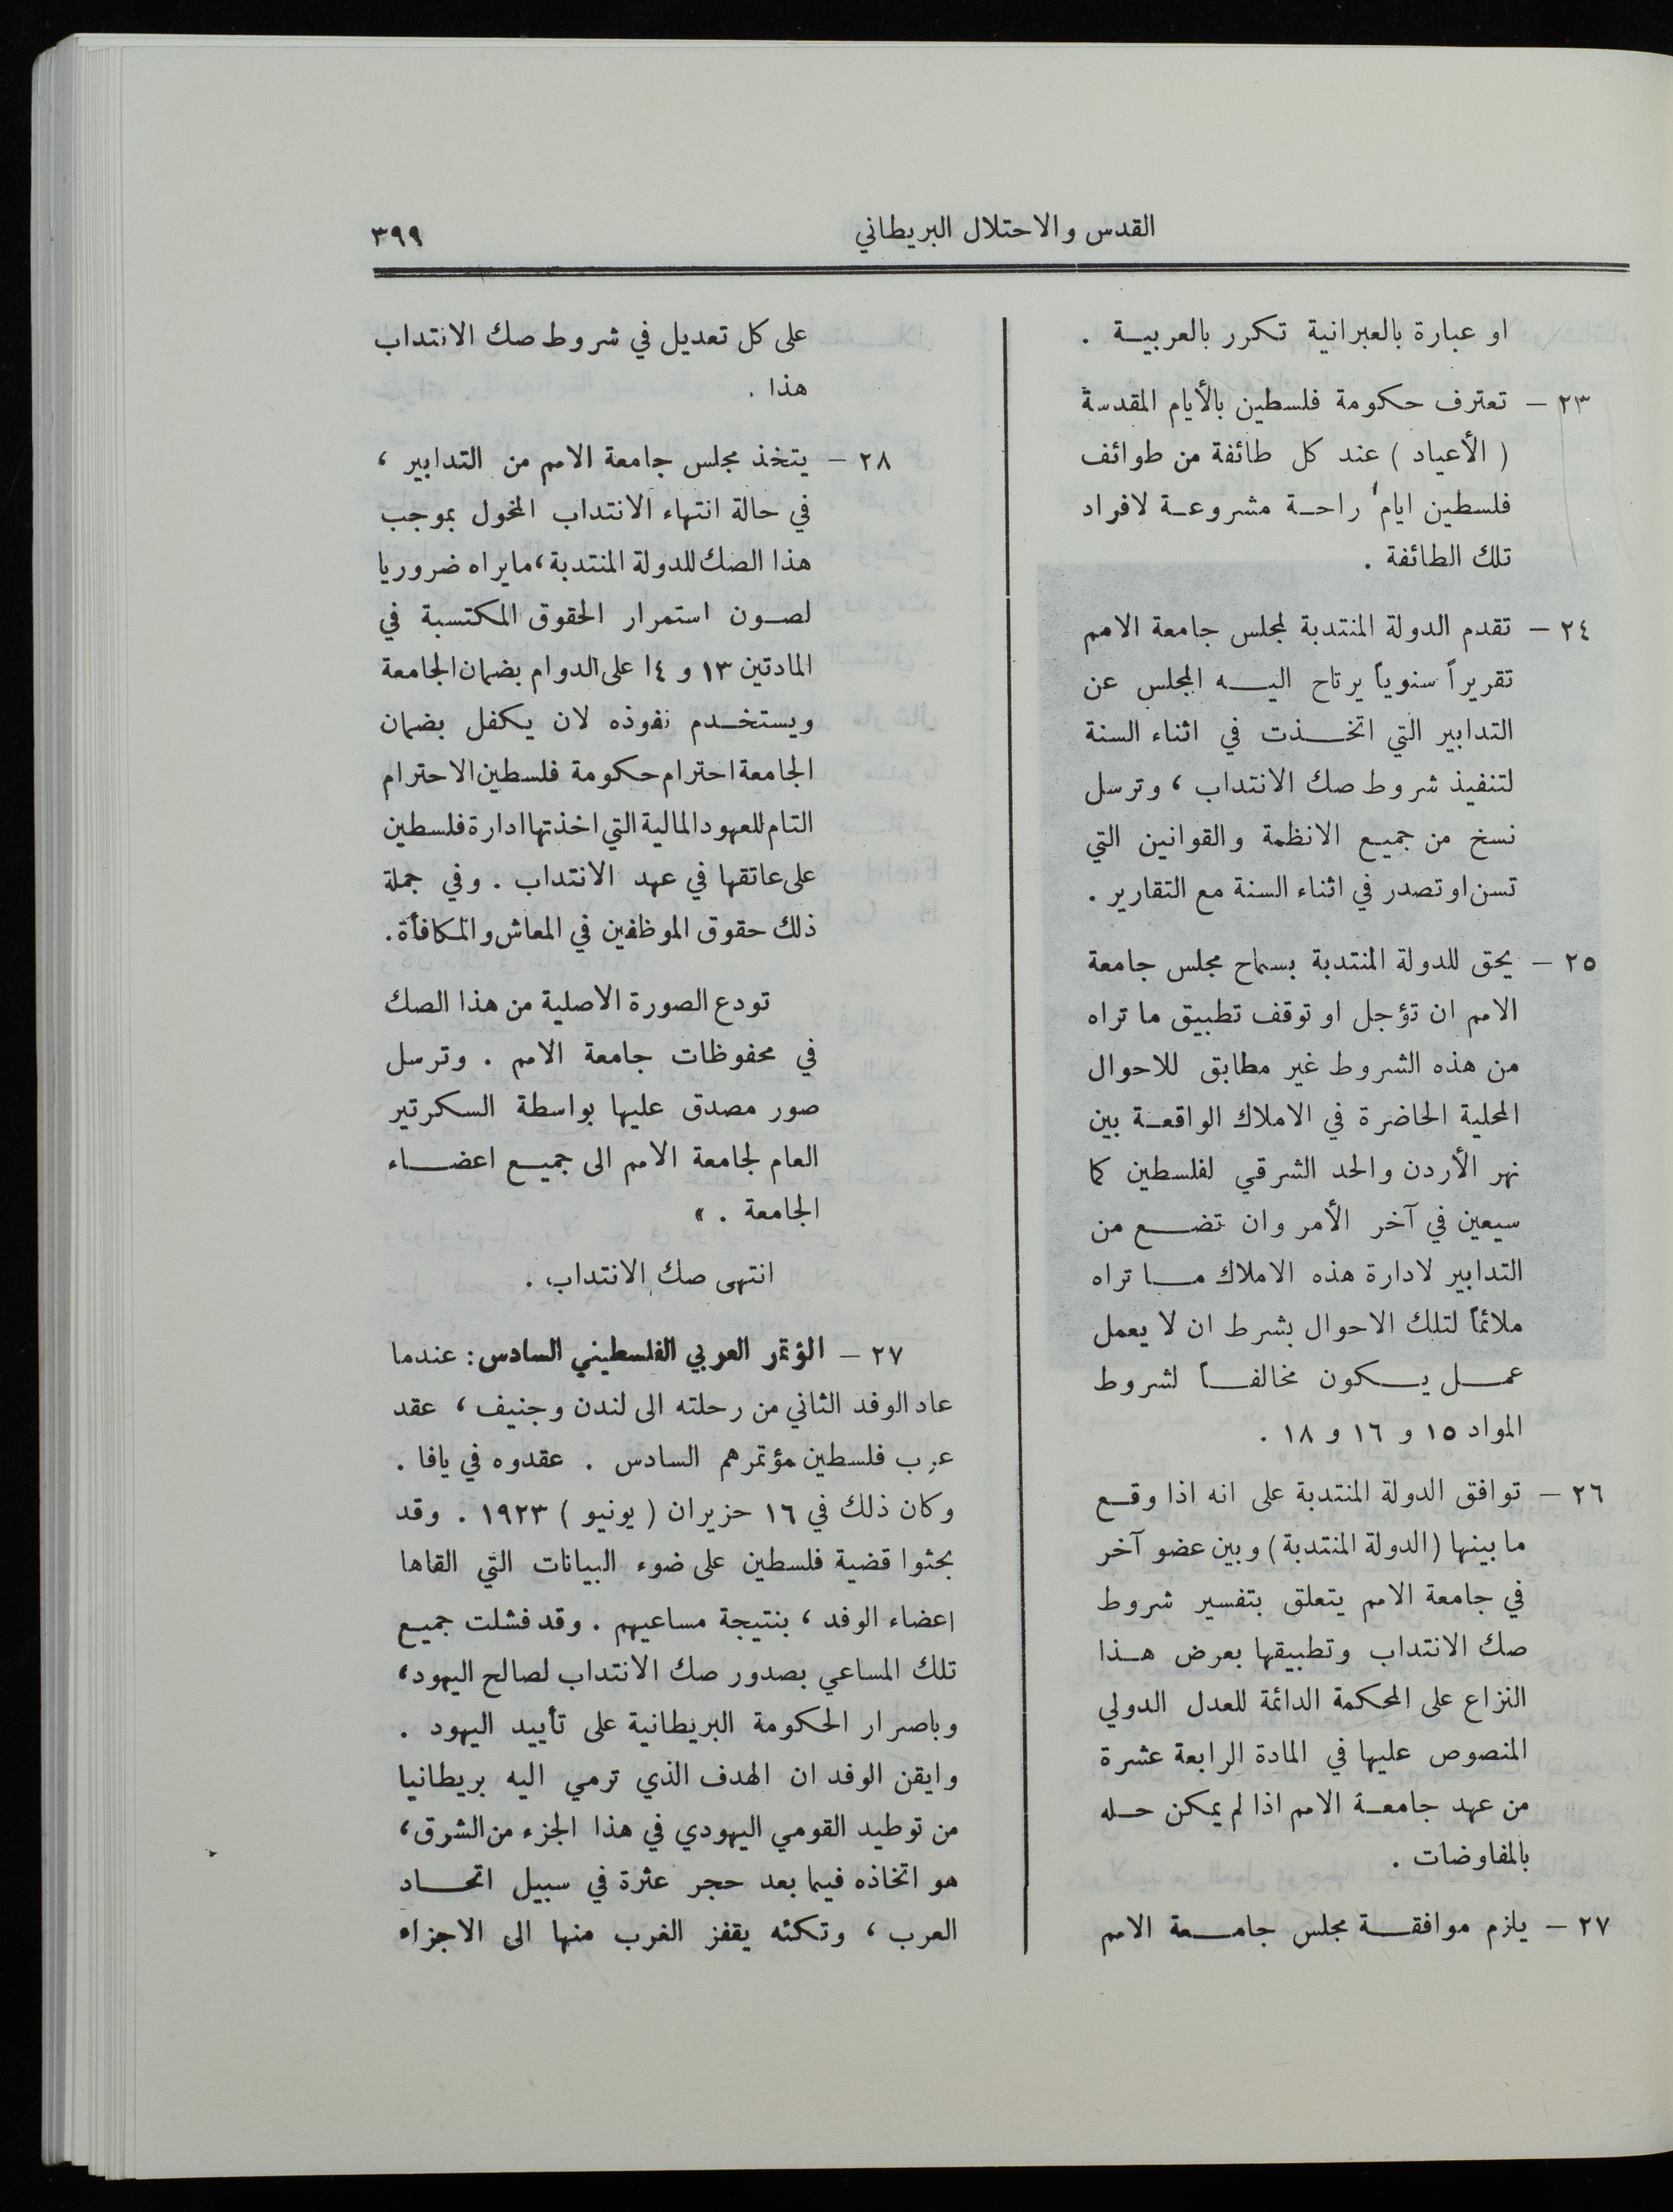 القدس والاحتلال البريطاني
٣٩٩
او عبارة بالعبرانية تكرر بالعربيـة .
٢٣ — تعترف حكومة فلسطين بالأيام المقدسة
( الأعياد ) عند كل طائفة من طوائف
فلسطين ايام راحـة مشروعـة لافراد
تلك الطائفة .
٢٤ — تقدم الدولة المنتدبة لمجلس جامعة الامم
تقريراً سنوياً يرتاح اليـه المجلس عن
التدابير التي اتخـذت في اثناء السنة
لتنفيذ شروط صك الانتداب ، وترسل
نسخ من جميع الانظمة والقوانين التي
تسن او تصدر في اثناء السنة مع التقارير .
٢٥ — يحق للدولة المنتدبة بسماح مجلس جامعة
الامم ان تؤجل او توقف تطبيق ما تراه
من هذه الشروط غير مطابق للاحوال
المحلية الحاضرة في الاملاك الواقعـة بين
نهر الأردن والحد الشرقي لفلسطين كما
سيعين في آخر الأمر وان تضـع من
التدابير لادارة هذه الاملاك مـا تراه
ملائماً لتلك الاحوال بشرط ان لا يعمل
عمـل يـكون مخالفـاً لشروط
المواد ١٥ و ١٦ و ١٨ .
٢٦ — توافق الدولة المنتدبة على انه اذا وقـع
ما بينها (الدولة المنتدبة) وبين عضو آخر
في جامعة الامم يتعلق بتفسير شروط
صك الانتداب وتطبيقها بعرض هـذا
النزاع على المحكمة الدائمة للعدل الدولي
المنصوص عليها في المادة الرابعة عشرة
من عهد جامعـة الامم اذا لم يمكن حـله
بالمفاوضات .
٢٧ — يلزم موافقـة مجلس جامـعة الامم
على كل تعديل في شروط صك الانتداب
هذا .
٢٨ — يتخذ مجلس جامعة الامم من التدابير ،
في حالة انتهاء الانتداب المخول بموجب
هذا الصك للدولة المنتدبة، ما يراه ضروريا
لصـون استمرار الحقوق المكتسبة في
المادتين ١٣ و ١٤ على الدوام بضمان الجامعة
ويستخـدم نفوذه لان يكفل بضمان
الجامعة احترام حكومة فلسطين الاحترام
التام للعهود المالية التي اخذتها ادارة فلسطين
على عاتقها في عهد الانتداب . وفي جملة
ذلك حقوق الموظفين في المعاش والمكافأة .
تودع الصورة الاصلية من هذا الصك
في محفوظات جامعة الامم . وترسل
صور مصدق عليها بواسطة السكرتير
العام لجامعة الامم الى جميـع اعضـاء
الجامعة . »
انتهى صك الانتداب .
٢٧ — المؤتمر العربي الفلسطيني السادس : عندما
عاد الوفد الثاني من رحلته الى لندن وجنيف ، عقد
عرب فلسطين مؤتمرهم السادس . عقدوه في يافا .
وكان ذلك في ١٦ حزيران ( يونيو ) ١٩٢٣ . وقد
بحثوا قضية فلسطين على ضوء البيانات التي القاها
اعضاء الوفد ، بنتيجة مساعيهم . وقد فشلت جميـع
تلك المساعي بصدور صك الانتداب لصالح اليهود،
وباصرار الحكومة البريطانية على تأييد اليهود .
وايقن الوفد ان الهدف الذي ترمي اليه بريطانيا
من توطيد القومي اليهودي في هذا الجزء من الشرق،
هو اتخاذه فيما بعد حجر عثرة في سبيل اتحـاد
العرب ، وتكئه يقفز الغرب منها الى الاجزاء